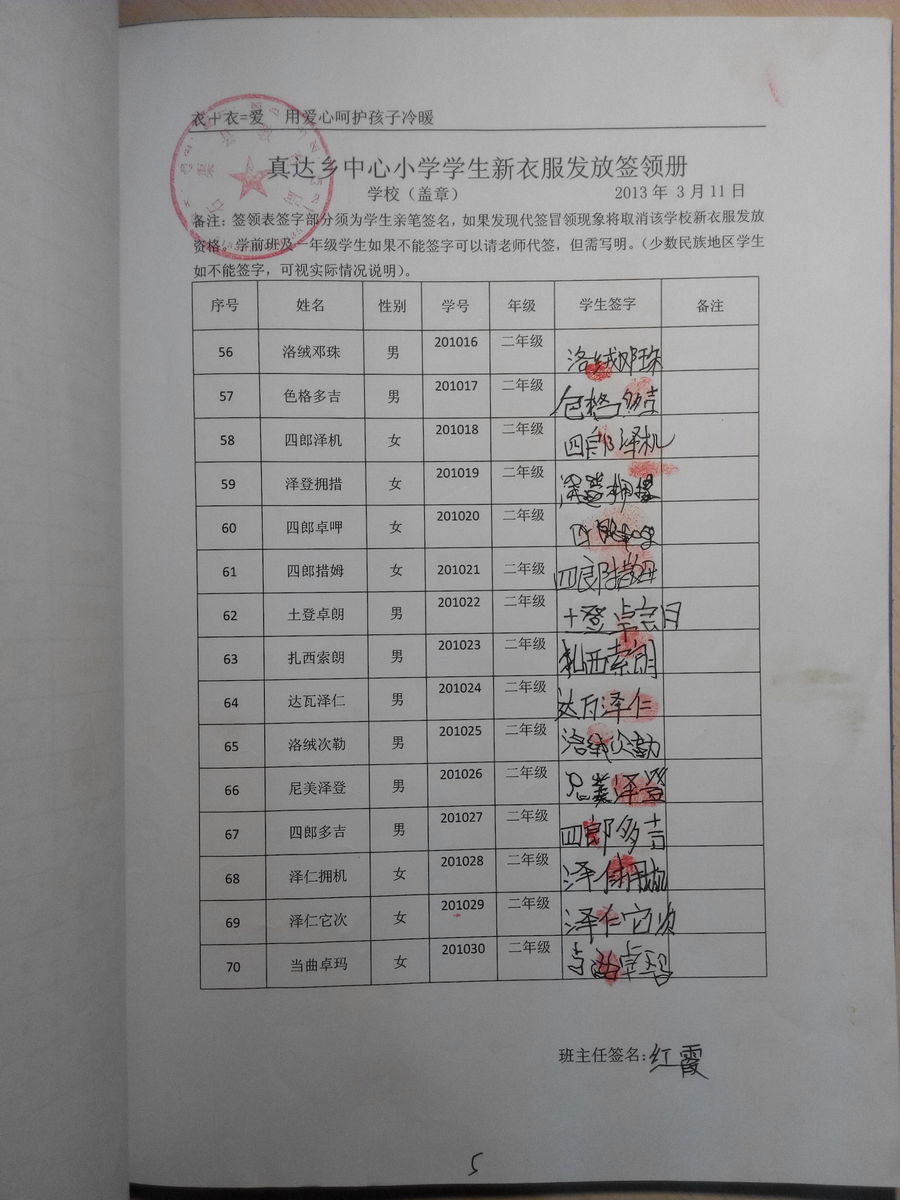 衣+衣=爱 用爱心呵护孩子冷暖
真达乡中心小学学生新衣服发放签领册
学校（盖章） 2013 年 3 月 11 日
备注：签领表签字部分须为学生亲笔签名，如果发现代签冒领现象将取消该学校新衣服发放
资格。学前班及一年级学生如果不能签字可以请老师代签，但需写明。（少数民族地区学生
如不能签字，可视实际情况说明）。
序号 姓名 性别 学号 年级 学生签字 备注
56 洛绒邓珠 男 201016 二年级 洛绒邓珠
57 色格多吉 男 201017 二年级 色格多吉
58 四郎泽机 女 201018 二年级 四郎泽机
59 泽登拥措 女 201019 二年级 泽登拥措
60 四郎卓呷 女 201020 二年级
61 四郎措姆 女 201021 二年级 四郎措姆
62 土登卓朗 男 201022 二年级 土登卓朗
63 扎西索朗 男 201023 二年级 扎西索朗
64 达瓦泽仁 男 201024 二年级 达瓦泽仁
65 洛绒次勒 男 201025 二年级 洛绒次勒
66 尼美泽登 男 201026 二年级 尼美泽登
67 四郎多吉 男 201027 二年级 四郎多吉
68 泽仁拥机 女 201028 二年级 泽仁拥机
69 泽仁它次 女 201029 二年级 泽仁它次
70 当曲卓玛 女 201030 二年级 当曲卓玛
班主任签名：红霞
5